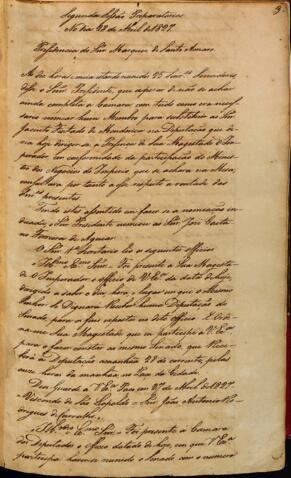 3
Segunda Sessão Preparatoria
No dia 28 de Abril de 1827.
Presidencia do Snr. Marquez de Santo Amaro
Ás dez horas e meia achando-se 25 Snr.es Senadores
disse o Snr. Presidente, que apezar de não se achar
ainda completa a Camara com tudo como era neces-
sario nomear hum Membro para substituir ao Snr.
Jacinto Furtado de Mendonça na Deputação que de-
via hoje dirigir-se á Presença de Sua Magestade o Im-
perador, em conformidade da participação do Minis-
tro dos Negocios do Imperio que se achava na Mesa,
consultava por tanto a esse respeito a vontade dos
Snr.es presentes.
Tendo estes assentido em fazer-se a nomeação in-
dicada, o Snr. Presidente nomeou ao Snr. José Caeta-
no Ferreira de Aguiar.
O Snr. 1.º Secretario leo os seguintes officios
Ill.mo e Ex.mo Snr. = Foi presente a Sua Magesta-
de O Imperador o Officio de V. Ex.a da data de hoje,
dirigido a saber o dia, hora, e lugar em que o Mesmo
Senhor Se Dignará Receber huma Deputação do
Senado, para o fim exposto no dito officio. E Orde-
na-me Sua Magestade que eu participe a V. Ex.a
para o fazer constar ao mesmo Senado, que Rece-
berá a Deputação amanhãa 28 do corrente, pelas
onze horas da manhãa no Paço da Cidade.
Deus Guarde a V. Ex.a Paço em 27 de Abril de 1827
Visconde de São Leopoldo = Snr. João Antonio Ro-
drigues de Carvalho.
Ill.mo e Ex.mo Snr. = Foi presente á Camara
dos Deputados o officio datado de hoje, em que V. Ex.a
participa havendo reunido o Senado com o numero